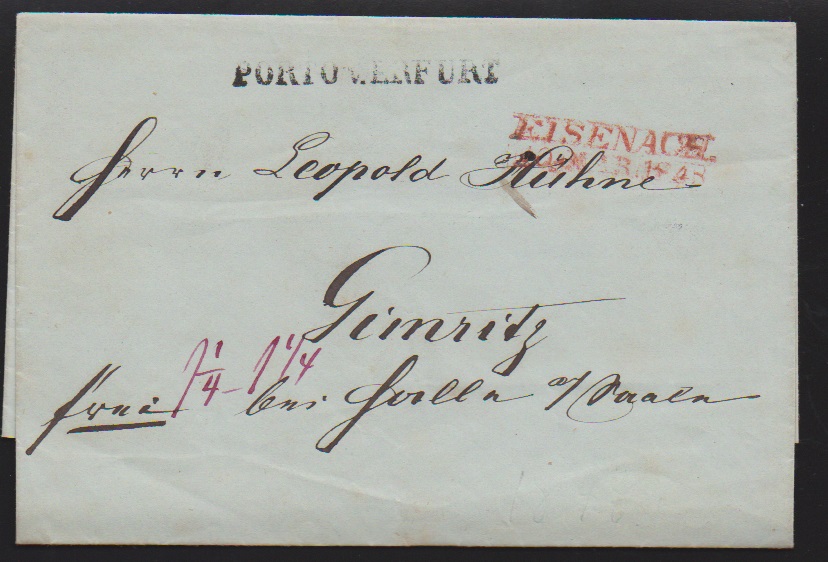 PORTO V. ERFURT
EISENACH
MAR 1848
Herrn Leopold Kühne
Gimritz
frei 1 1/4 - 1 1/4 bei Halle a/ Saale